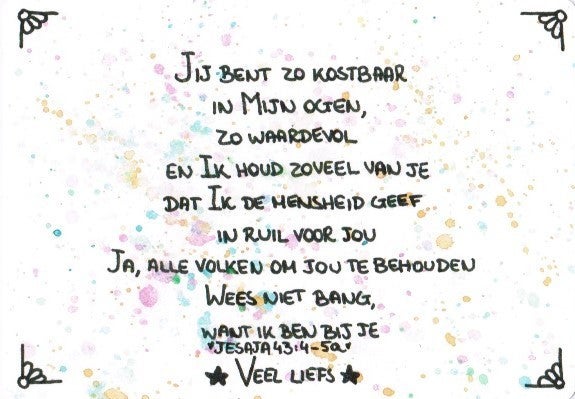 Jij bent zo kostbaar
in Mijn ogen,
zo waardevol
en Ik houd zoveel van je
dat Ik de mensheid geef
in ruil voor jou
Ja, alle volken om jou te behouden
Wees niet bang,
want ik ben bij je
♥Jesaja 43:4-5a♥
★ Veel liefs ★